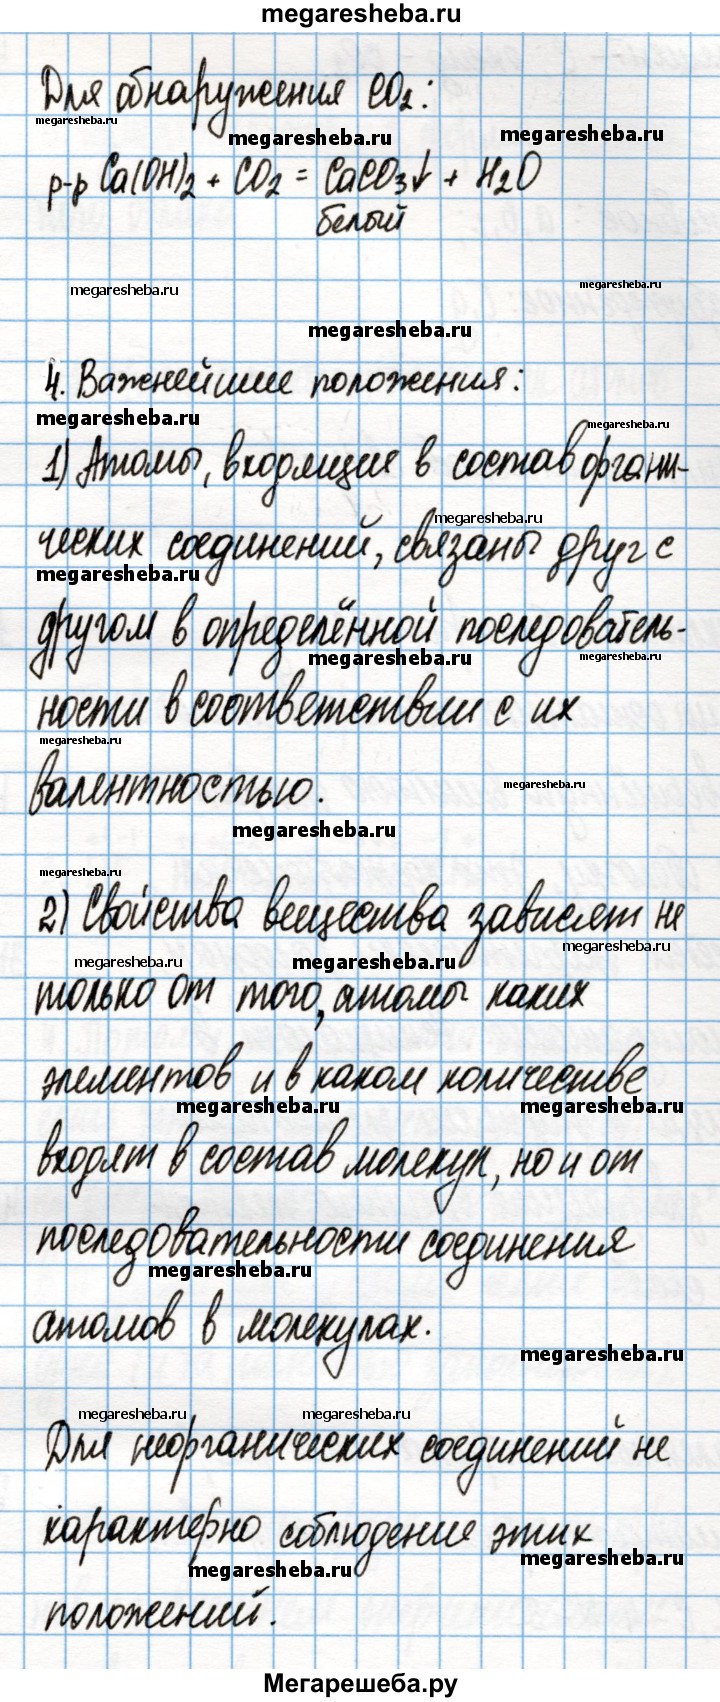 megaresheba.ru
Для обнаружения CO₂:
megaresheba.ru
megaresheba.ru megaresheba.ru
р-р Ca(OH)₂ + CO₂ = CaCO₃↓ + H₂O
белый
megaresheba.ru megaresheba.ru
megaresheba.ru
4. Важнейшие положения:
megaresheba.ru megaresheba.ru
1) Атомы, входящие в состав органи-
megaresheba.ru
ческих соединений, связаны друг с
megaresheba.ru
другом в определённой последователь-
megaresheba.ru megaresheba.ru
ности в соответствии с их
megaresheba.ru
валентностью.
megaresheba.ru
megaresheba.ru
megaresheba.ru
2) Свойства вещества зависят не
megaresheba.ru megaresheba.ru megaresheba.ru
только от того, атомы каких
элементов и в каком количестве
megaresheba.ru megaresheba.ru
входят в состав молекул, но и от
последовательности соединения
megaresheba.ru
атомов в молекулах.
megaresheba.ru
megaresheba.ru megaresheba.ru
Для неорганических соединений не
характерно соблюдение этих
megaresheba.ru megaresheba.ru
положений.
Мегарешеба.ру